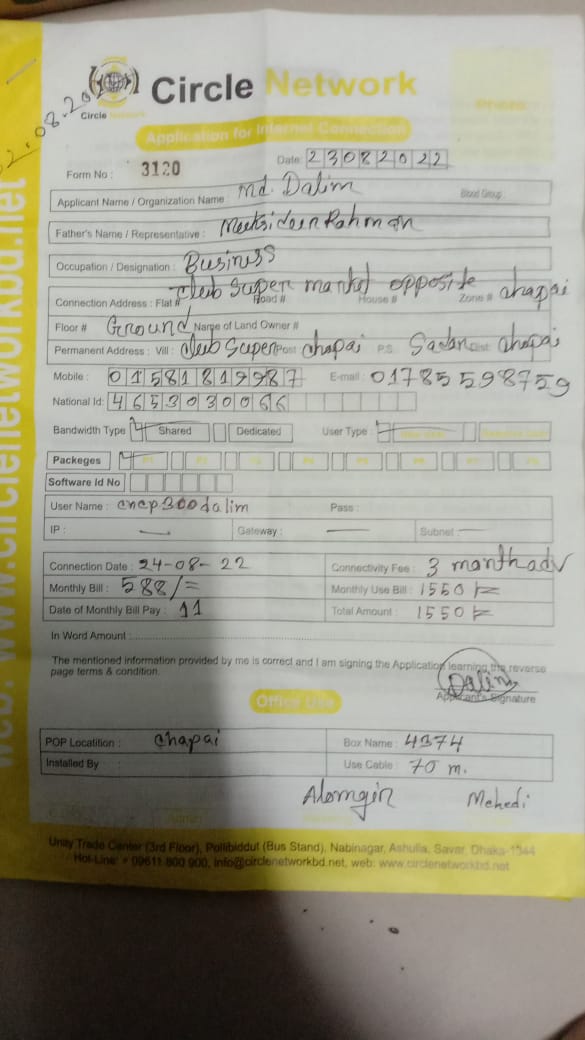 Circle Network
Circle Network
Application for Internet Connection
Form No : 3120 Date: 23082022
Applicant Name / Organization Name : Md. Dalim Blood Group :
Father's Name / Representative : Rahman
Occupation / Designation : Business
club super market opposite chapai
Connection Address : Flat # Road # House # Zone #
Floor # Ground Name of Land Owner #
Permanent Address : Vill : club super Post chapai P.S. Sadar Dist: chapai
Mobile : 01581819987 E-mail : 01785598759
National Id: 4653030066
Bandwidth Type Shared Dedicated User Type :
Packeges P1 P2 P3 P4 P5 P6 P7 P8
Software Id No
User Name : cncp300dalim Pass :
IP : — Gateway : — Subnet : —
Connection Date : 24-08-22 Connectivity Fee : 3 manth adv
Monthly Bill : 588/= Monthly Use Bill : 1550
Date of Monthly Bill Pay : 11 Total Amount : 1550
In Word Amount :
The mentioned information provided by me is correct and I am signing the Application learning the reverse
page terms & condition.
Dalim
Applicant's Signature
Office Use
POP Locatition : chapai Box Name : 4374
Installed By Use Cable : 70 m.
Alomgir Mehedi
Unity Trade Center (3rd Floor), Pollibiddut (Bus Stand), Nabinagar, Ashulia, Savar, Dhaka-1344
Hot-Line: + 09611 800 900, info@circlenetworkbd.net, web: www.circlenetworkbd.net
web: www.circlenetworkbd.net